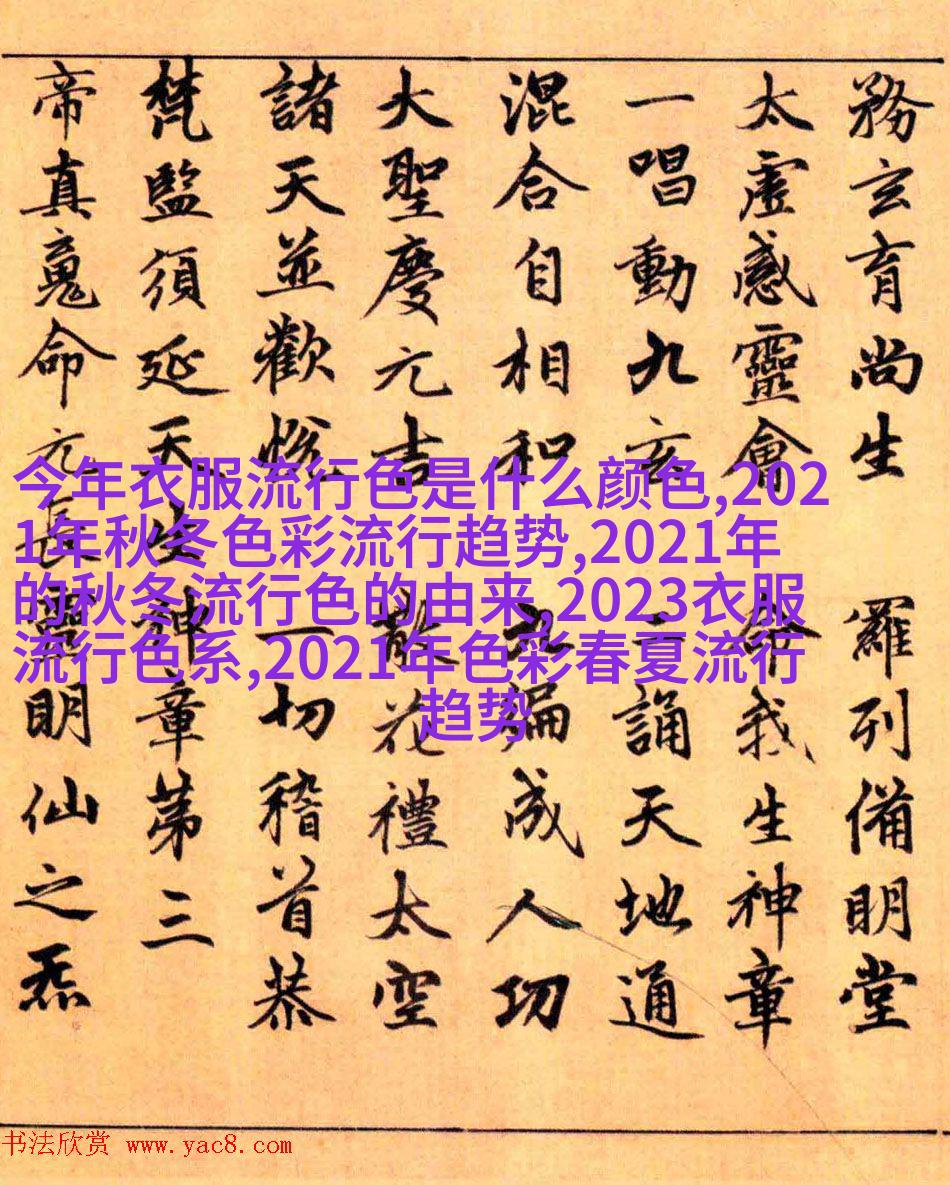 務玄育尚生 羅列備明堂
太虛感靈會 命我生神章
一唱動九玄 二誦天地通
混合自相和 九遍成人功
大聖慶元吉 散花禮太空
諸天並歡悅 一切稽首恭
梵監須延天生神章第三
帝真魂命元長靈明仙之炁
今年衣服流行色是什么颜色,202
1年秋冬色彩流行趋势,2021年
的秋冬流行色的由来,2023衣服
流行色系,2021年色彩春夏流行
趋势
书法欣赏 www.yac8.com